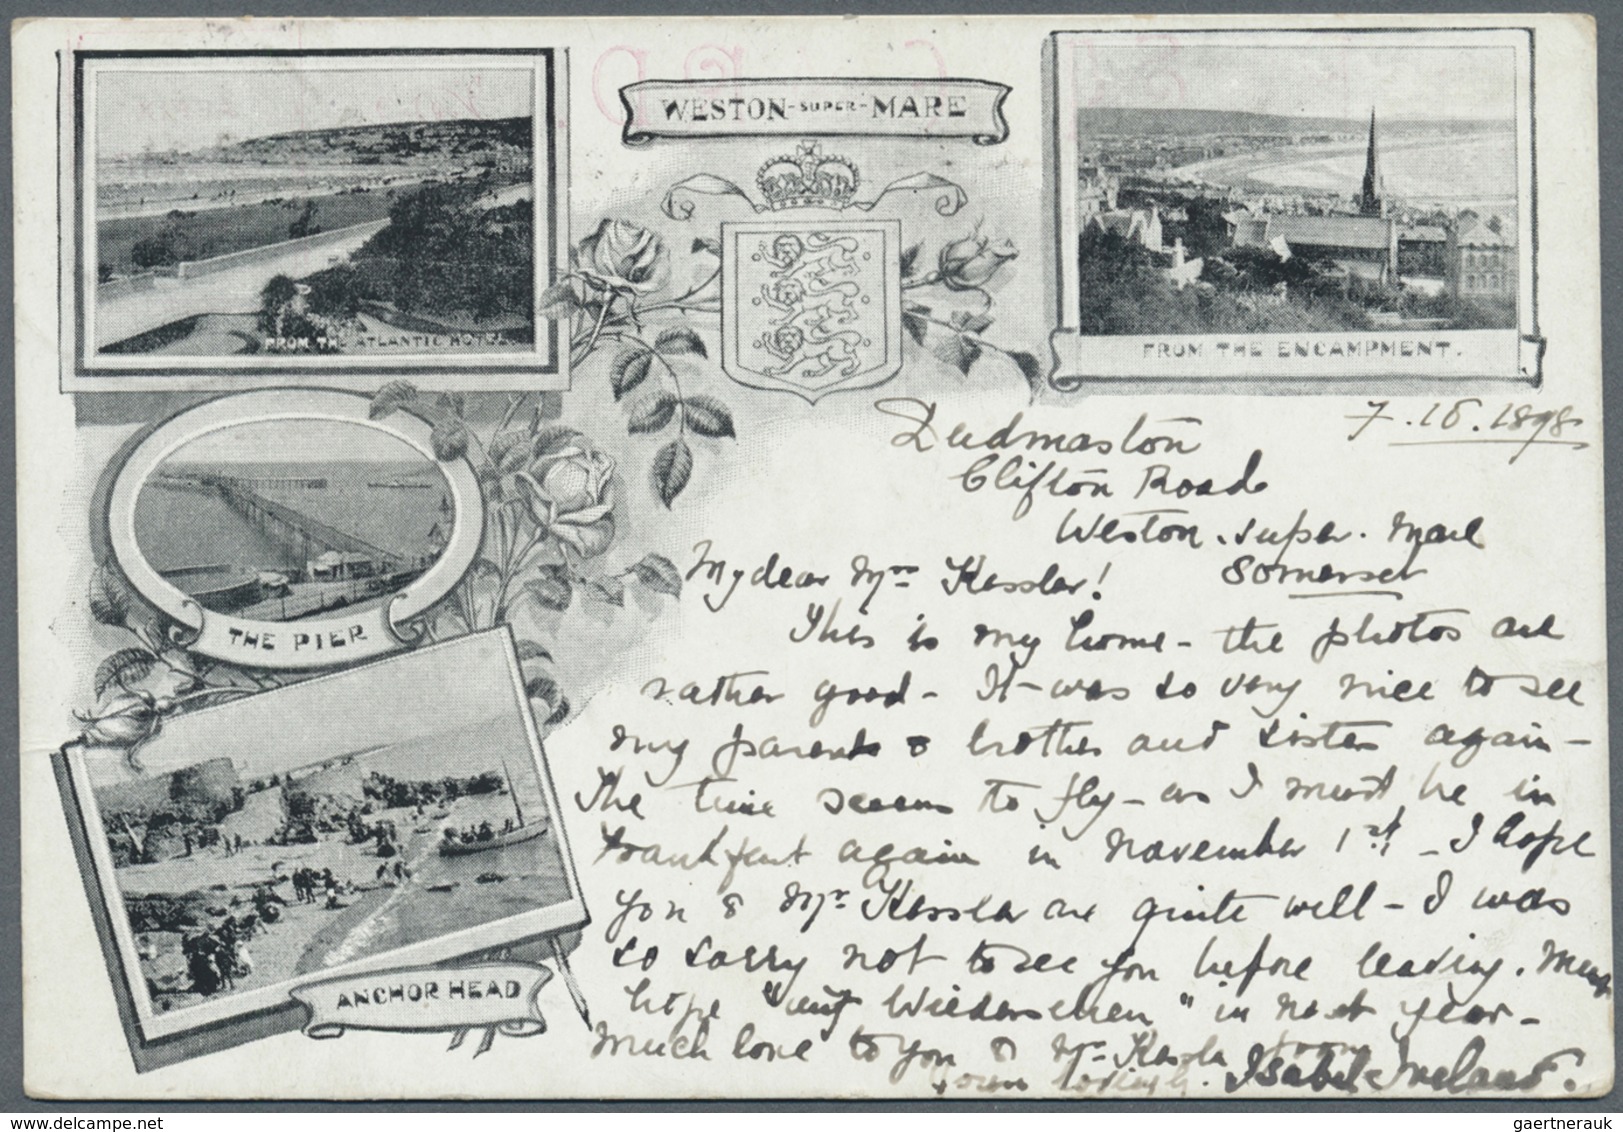 WESTON-SUPER-MARE
FROM THE ATLANTIC HOTEL.
FROM THE ENCAMPMENT.
THE PIER
ANCHOR HEAD
7.10.1898
Dudmaston
Clifton Road
Weston.super.Mare
Somerset
My dear Mrs Kessler!
This is my home - the photos are
rather good - It was so very nice to see
my parents & brother and sister again -
The time seems to fly - as I must be in
Frankfurt again in November 1st - I hope
you & Mr Kessler are quite well - I was
so sorry not to see you before leaving.
hope "auf Wiedersehen" in next year -
Much love to you & Mr Kessler from
Isabel Ireland.
gaertnerauk